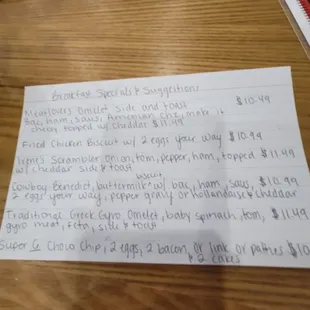 Breakfast Specials & Suggestions
Meatlovers Omelet side and toast $10.49
Bac, ham, saus, American chz, make it
cheesy topped w/ cheddar $11.49
Fried Chicken Biscuit w/ 2 eggs your way $10.94
Scrambler onion, tom, pepper, ham, topped $11.49
w/ cheddar side & toast
biscuit
Cowboy Benedict, buttermilk w/ bac, ham, saus, $10.99
2 eggs your way, pepper gravy or hollandaise & cheddar
Traditional Greek Gyro Omelet, baby spinach, tom, $11.49
gyro meat, feta, side & toast
Super 6 Choco Chip, 2 eggs, 2 bacon or link or patties $10
& 2 cakes